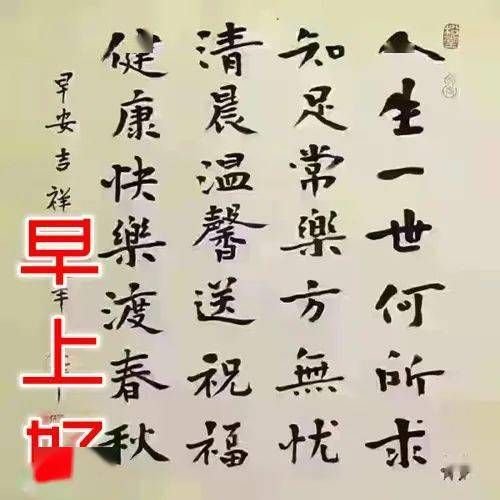 人生一世何所求
知足常樂方無忧
清晨温馨送祝福
健康快樂渡春秋
早安吉祥
早上好